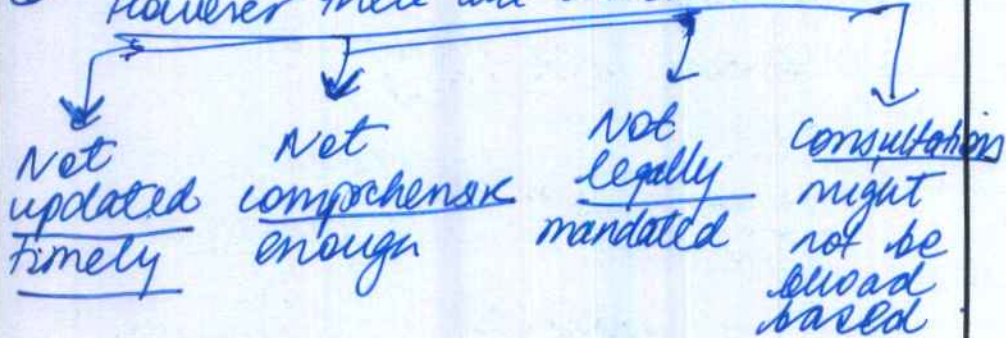 However there are
Not
updated
timely
Not
comprehensive
enough
Not
legally
mandated
Consultations
might
not be
broad
based